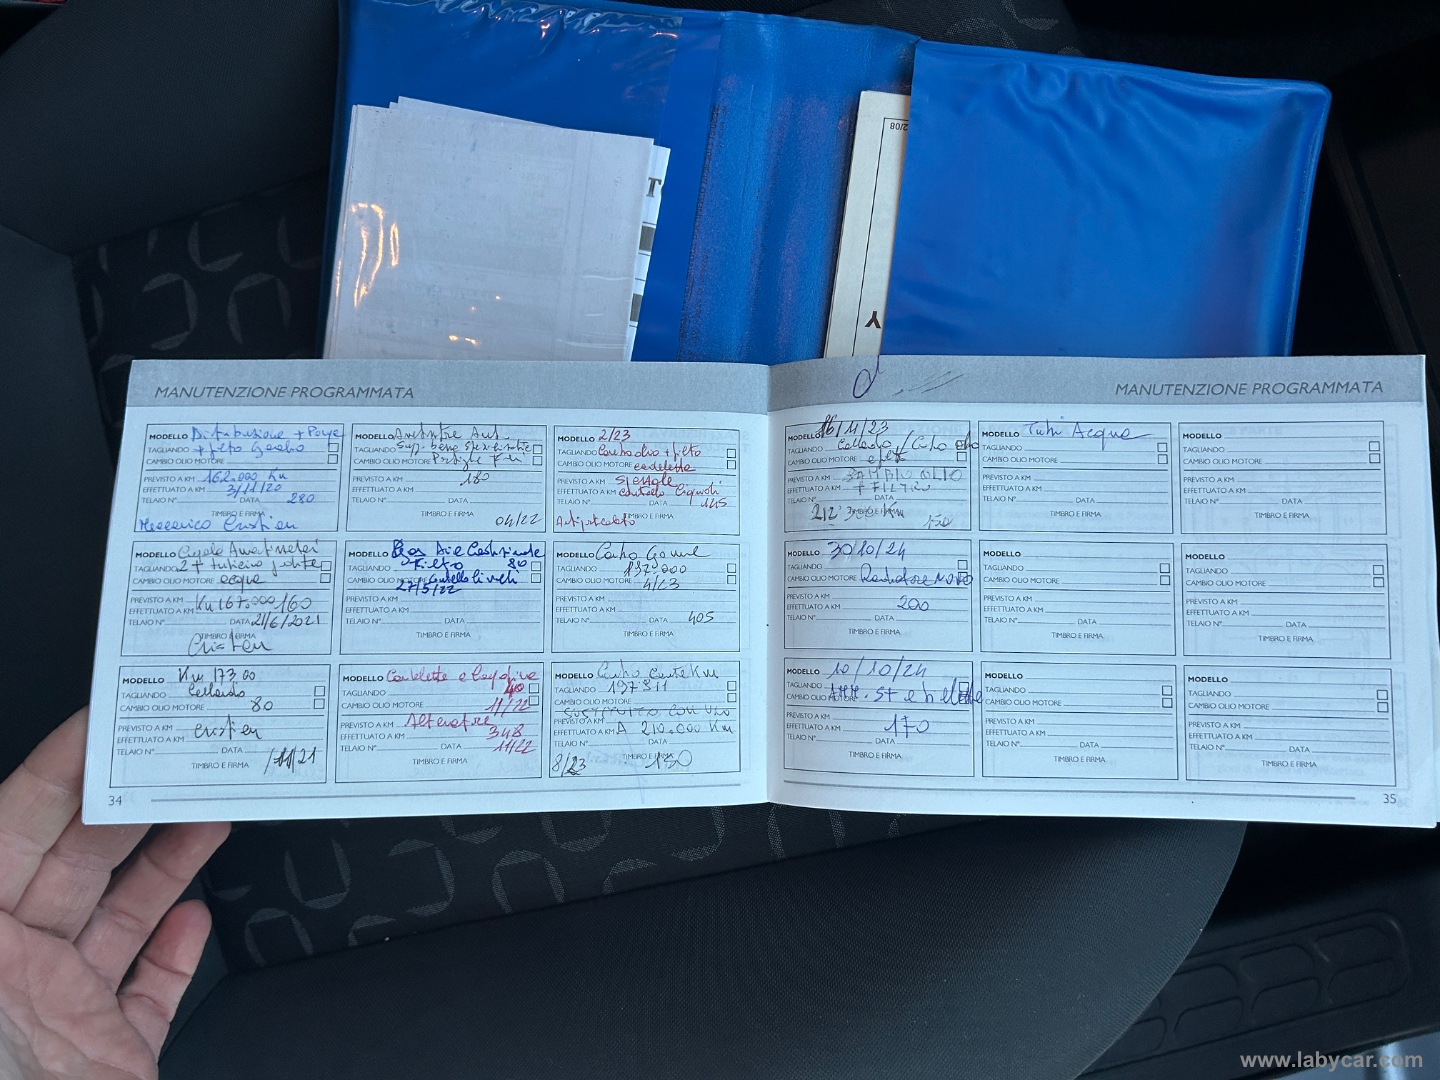 2/08
T
Y
MANUTENZIONE PROGRAMMATA
MODELLO Distribuzione + Pompa
TAGLIANDO
CAMBIO OLIO MOTORE
PREVISTO A KM 162.000 Km
EFFETTUATO A KM 3/11/20
TELAIO N° DATA 280
TIMBRO E FIRMA
Meccanico Cristian
MODELLO
TAGLIANDO
CAMBIO OLIO MOTORE
PREVISTO A KM 180
EFFETTUATO A KM
TELAIO N° DATA
TIMBRO E FIRMA
04/22
MODELLO 2/23
TAGLIANDO Cambio olio + filto
CAMBIO OLIO MOTORE candelette
PREVISTO A KM
EFFETTUATO A KM controllo liquidi
TELAIO N° DATA 145
TIMBRO E FIRMA
MODELLO
TAGLIANDO
CAMBIO OLIO MOTORE acqua
PREVISTO A KM Km 167.000 160
EFFETTUATO A KM
TELAIO N° DATA 21/6/2021
TIMBRO E FIRMA
Cristian
MODELLO
TAGLIANDO Filtro 80
CAMBIO OLIO MOTORE controllo livelli
27/5/22
PREVISTO A KM
EFFETTUATO A KM
TELAIO N° DATA
TIMBRO E FIRMA
MODELLO Cambio Gomme
TAGLIANDO 197.000
CAMBIO OLIO MOTORE 4/23
PREVISTO A KM
EFFETTUATO A KM
TELAIO N° DATA 405
TIMBRO E FIRMA
MODELLO Km 173.00
TAGLIANDO Collaudo
CAMBIO OLIO MOTORE 80
PREVISTO A KM Cristian
EFFETTUATO A KM
TELAIO N° DATA
TIMBRO E FIRMA
11/21
MODELLO Candelette e
TAGLIANDO 40
CAMBIO OLIO MOTORE 11/22
PREVISTO A KM Alternatore
EFFETTUATO A KM 348
TELAIO N° DATA 11/22
TIMBRO E FIRMA
MODELLO Cambio Conta Km
TAGLIANDO 197811
CAMBIO OLIO MOTORE
SOSTITUITO CON UNO
PREVISTO A KM
EFFETTUATO A KM A 210.000 Km
TELAIO N° DATA
TIMBRO E FIRMA
8/23 150
34
MANUTENZIONE PROGRAMMATA
16/11/23
MODELLO Collaudo / Cambio olio
TAGLIANDO
CAMBIO OLIO MOTORE
PREVISTO A KM CAMBIO OLIO
EFFETTUATO A KM + FILTRO
TELAIO N° DATA
TIMBRO E FIRMA
212 300 Km 150
MODELLO Tubi Acqua
TAGLIANDO
CAMBIO OLIO MOTORE
PREVISTO A KM
EFFETTUATO A KM
TELAIO N° DATA
TIMBRO E FIRMA
MODELLO
TAGLIANDO
CAMBIO OLIO MOTORE
PREVISTO A KM
EFFETTUATO A KM
TELAIO N° DATA
TIMBRO E FIRMA
MODELLO 30/10/24
TAGLIANDO
CAMBIO OLIO MOTORE Radiatore NUOVO
PREVISTO A KM
EFFETTUATO A KM 200
TELAIO N° DATA
TIMBRO E FIRMA
MODELLO
TAGLIANDO
CAMBIO OLIO MOTORE
PREVISTO A KM
EFFETTUATO A KM
TELAIO N° DATA
TIMBRO E FIRMA
MODELLO
TAGLIANDO
CAMBIO OLIO MOTORE
PREVISTO A KM
EFFETTUATO A KM
TELAIO N° DATA
TIMBRO E FIRMA
MODELLO 10/10/24
TAGLIANDO
CAMBIO OLIO MOTORE
PREVISTO A KM
EFFETTUATO A KM 170
TELAIO N° DATA
TIMBRO E FIRMA
MODELLO
TAGLIANDO
CAMBIO OLIO MOTORE
PREVISTO A KM
EFFETTUATO A KM
TELAIO N° DATA
TIMBRO E FIRMA
MODELLO
TAGLIANDO
CAMBIO OLIO MOTORE
PREVISTO A KM
EFFETTUATO A KM
TELAIO N° DATA
TIMBRO E FIRMA
35
www.labycar.com